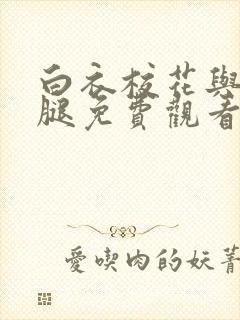 白衣校花與
腿免費觀看
愛喫肉的妖菁